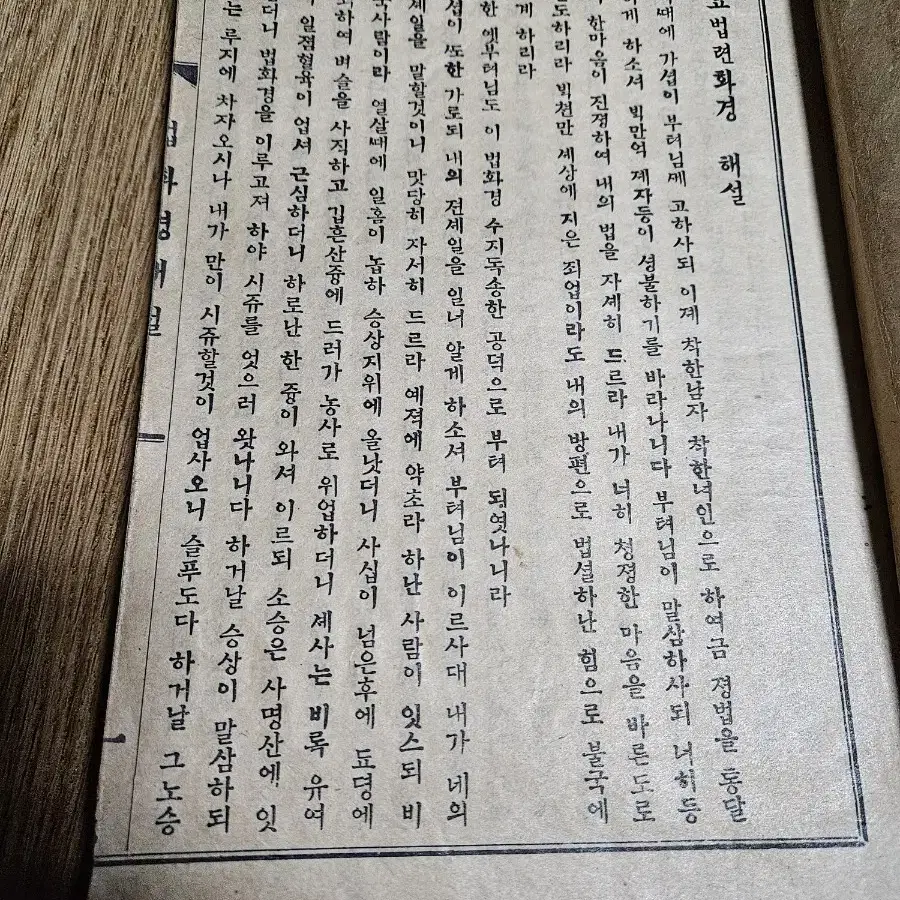 법련화경 해설
때에 가셥이 부텨님께 고하사되 이졔 착한남자 착한녀인으로 하여금 졍법을 통달
게 하소셔 빅만억 졔자등이 셩불하기를 바라나니다 부텨님이 말삼하사되 너히등
한마음이 진졍하여 내의 법을 자셰히 드르라 내가 너히 쳥졍한 마음을 바른도로
도하리라 빅쳔만 셰상에 지은 죄업이라도 내의 방편으로 법셜하난 힘으로 불국에
게 하리라
한 옛부텨님도 이 법화경 수지독송한 공덕으로 부텨 되엿나니라
셥이 또한 가로되 내의 젼셰일을 일너 알게 하소셔 부텨님이 이르사대 내가 네의
셰일을 말할것이니 맛당히 자서히 드르라 예젹에 약초라 하난 사람이 잇스되 비
국사람이라 열살때에 일홈이 놉하 승상지위에 올낫더니 사십이 넘은후에 됴뎡에
하여 벼슬을 사직하고 깁흔산즁에 드러가 농사로 위업하더니 셰사는 비록 유여
일졈혈육이 업셔 근심하더니 하로난 한 즁이 와셔 이르되 소승은 사명산에 잇
더니 법화경을 이루고져 하야 시쥬를 엇으러 왓나니다 하거날 승상이 말삼하되
는 루지에 차자오시나 내가 만이 시쥬할것이 업사오니 슬푸도다 하거날 그노승
법화경해설
一